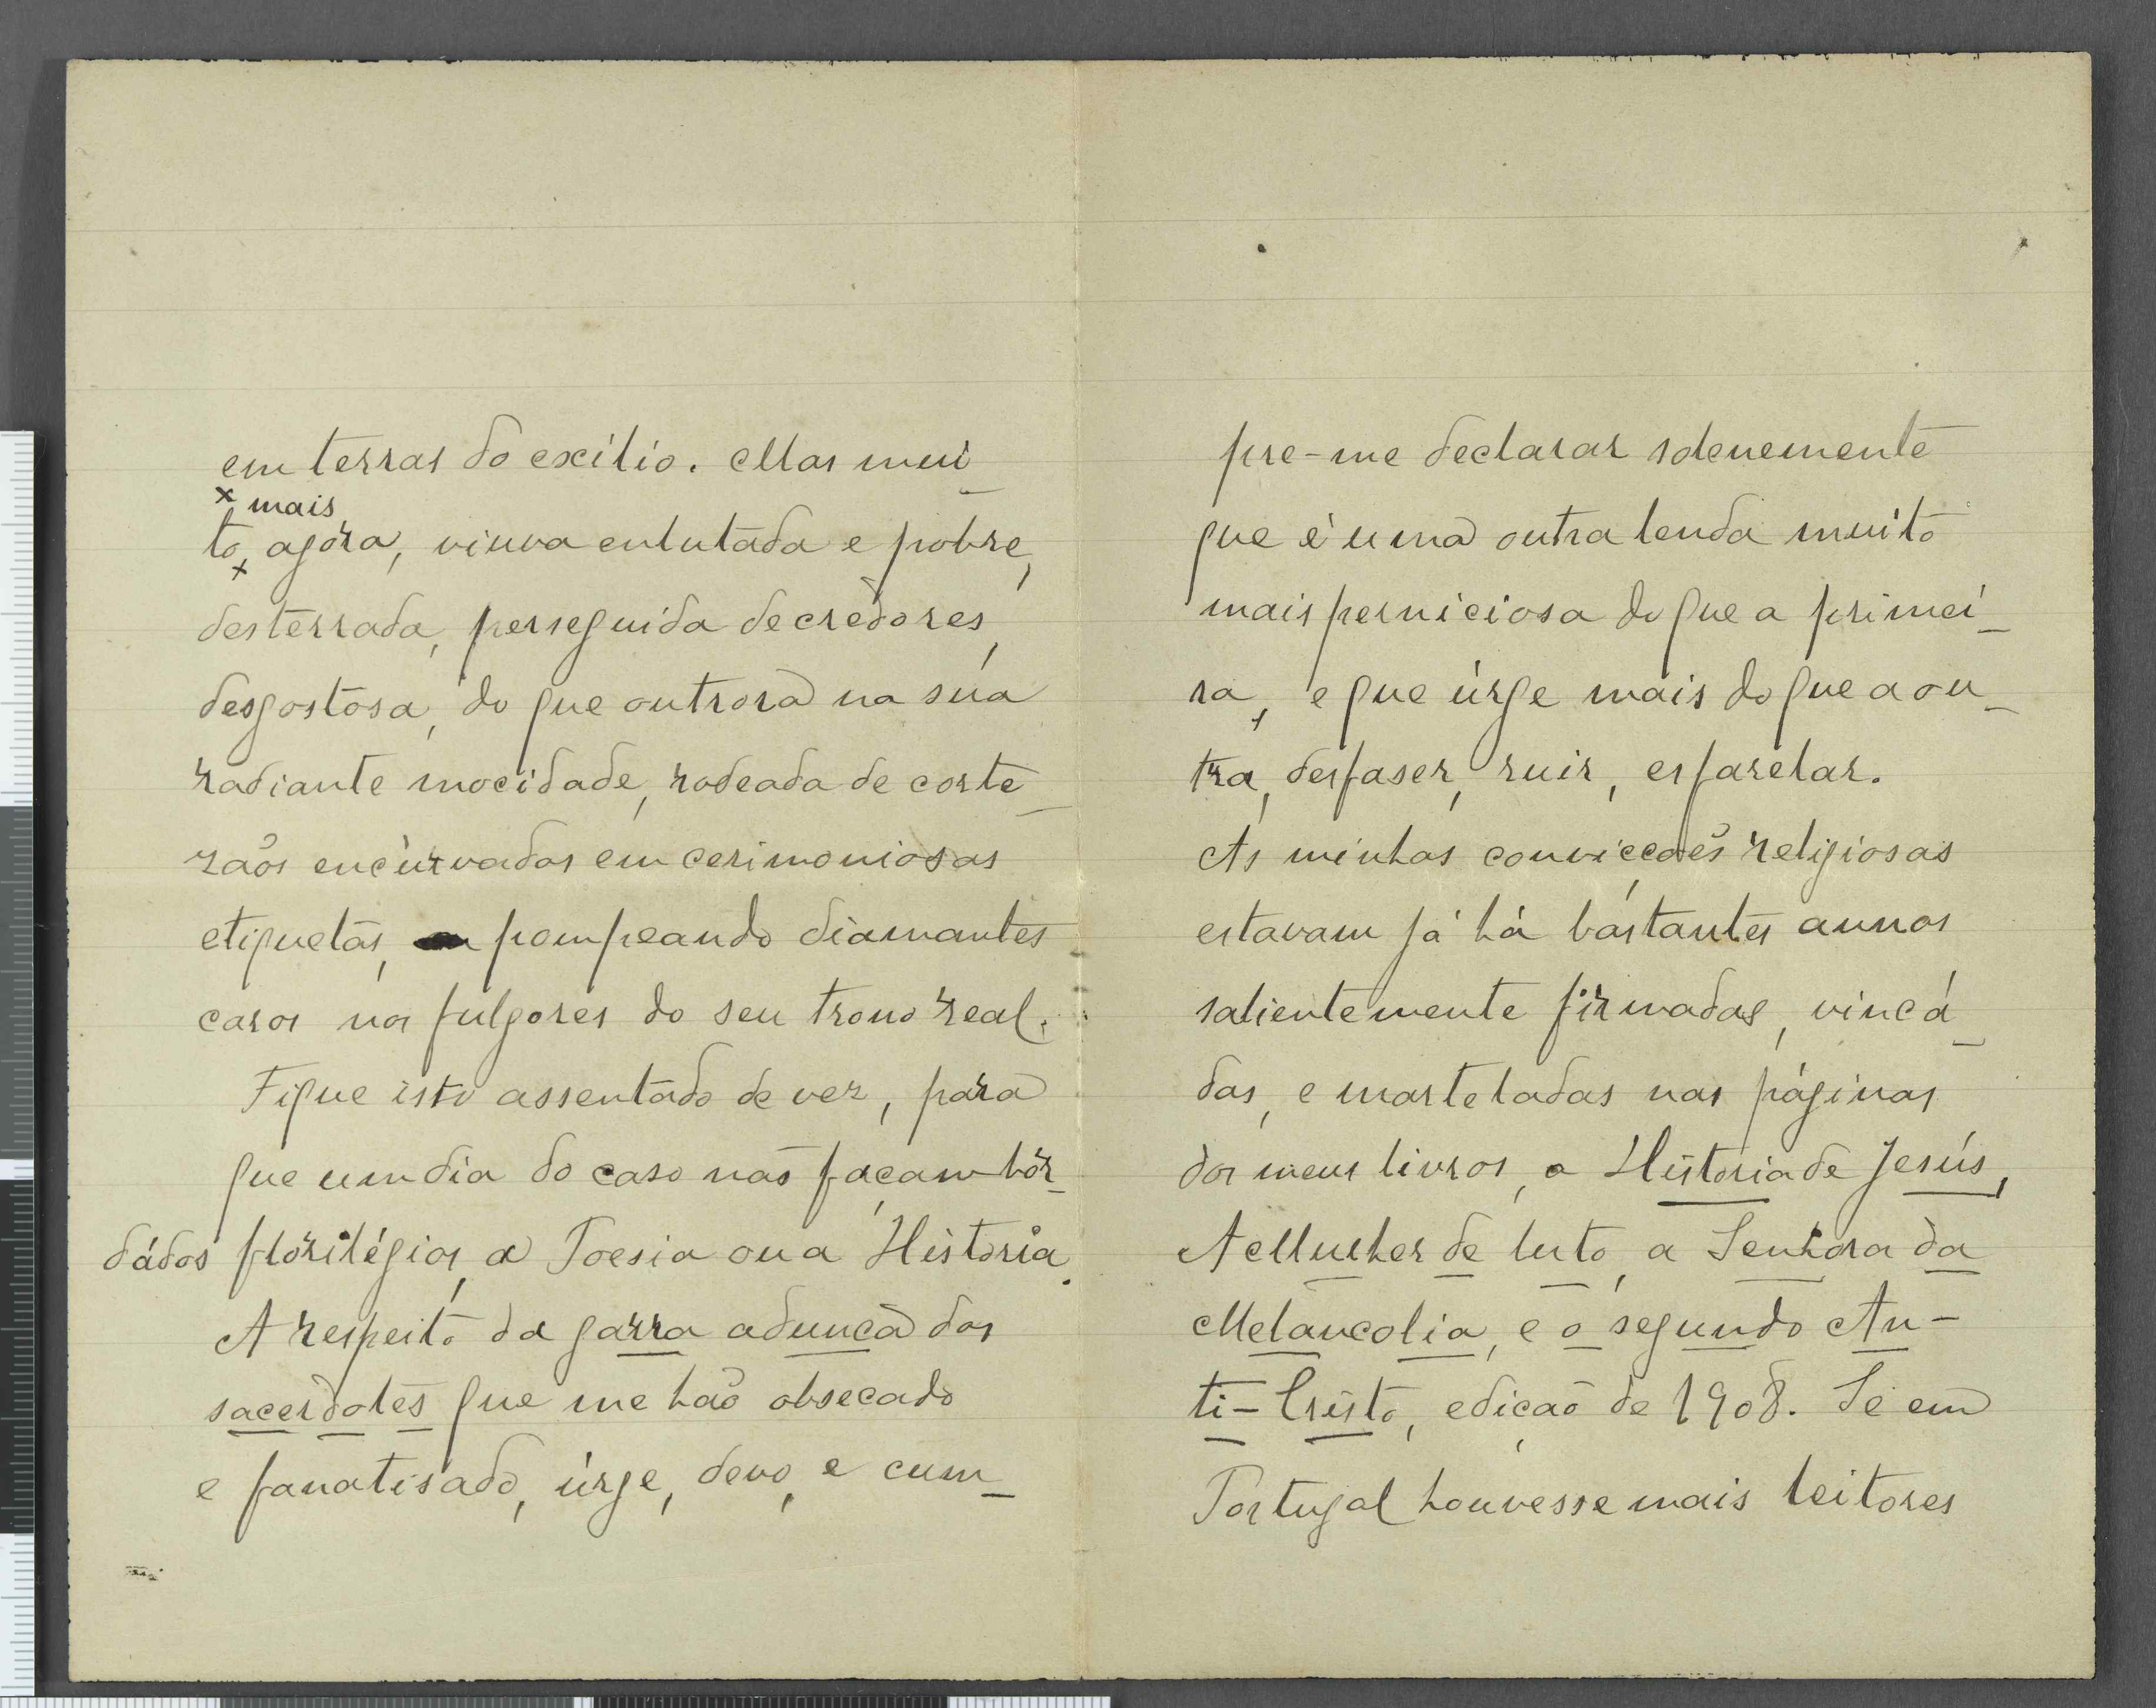 em terras do exílio. Mas mui_
x mais
to, agóra, viuva enlutada e pobre,
x
desterrada, perseguida de crèdores,
desgostosa, do que outrora na sua
radiante mocidade, rodeada de corte_
zãos encùrvados em cerimoniosas
etiquetas, pompeando diamantes
caros nos fulgores do seu trono real.
Fique isto assentado de vez, para
que um dia do caso não façam bor_
dádos florilégios, a Poesia ou a Historia.
A respeito da garra adunca dos
sacerdotes que me hão obsecado
e fanatisado, úrge, devo, e cum_
pre-me declarar solenemente
que é uma outra lenda muito
mais perniciosa do que a primei_
ra, e que úrge mais do que a ou_
tra, desfaser, ruir, esfarelar.
As minhas convicções religiosas
estavam já há bastantes annos
salientemente firmadas, vincá_
das, e marteladas nas páginas
dos meus livros, a Historia de Jesús,
A Mulher de luto, a Senhora da
Melancolia, e o segundo An-
ti-Cristo, edição de 1908. Se em
Portugal houvesse mais leitores